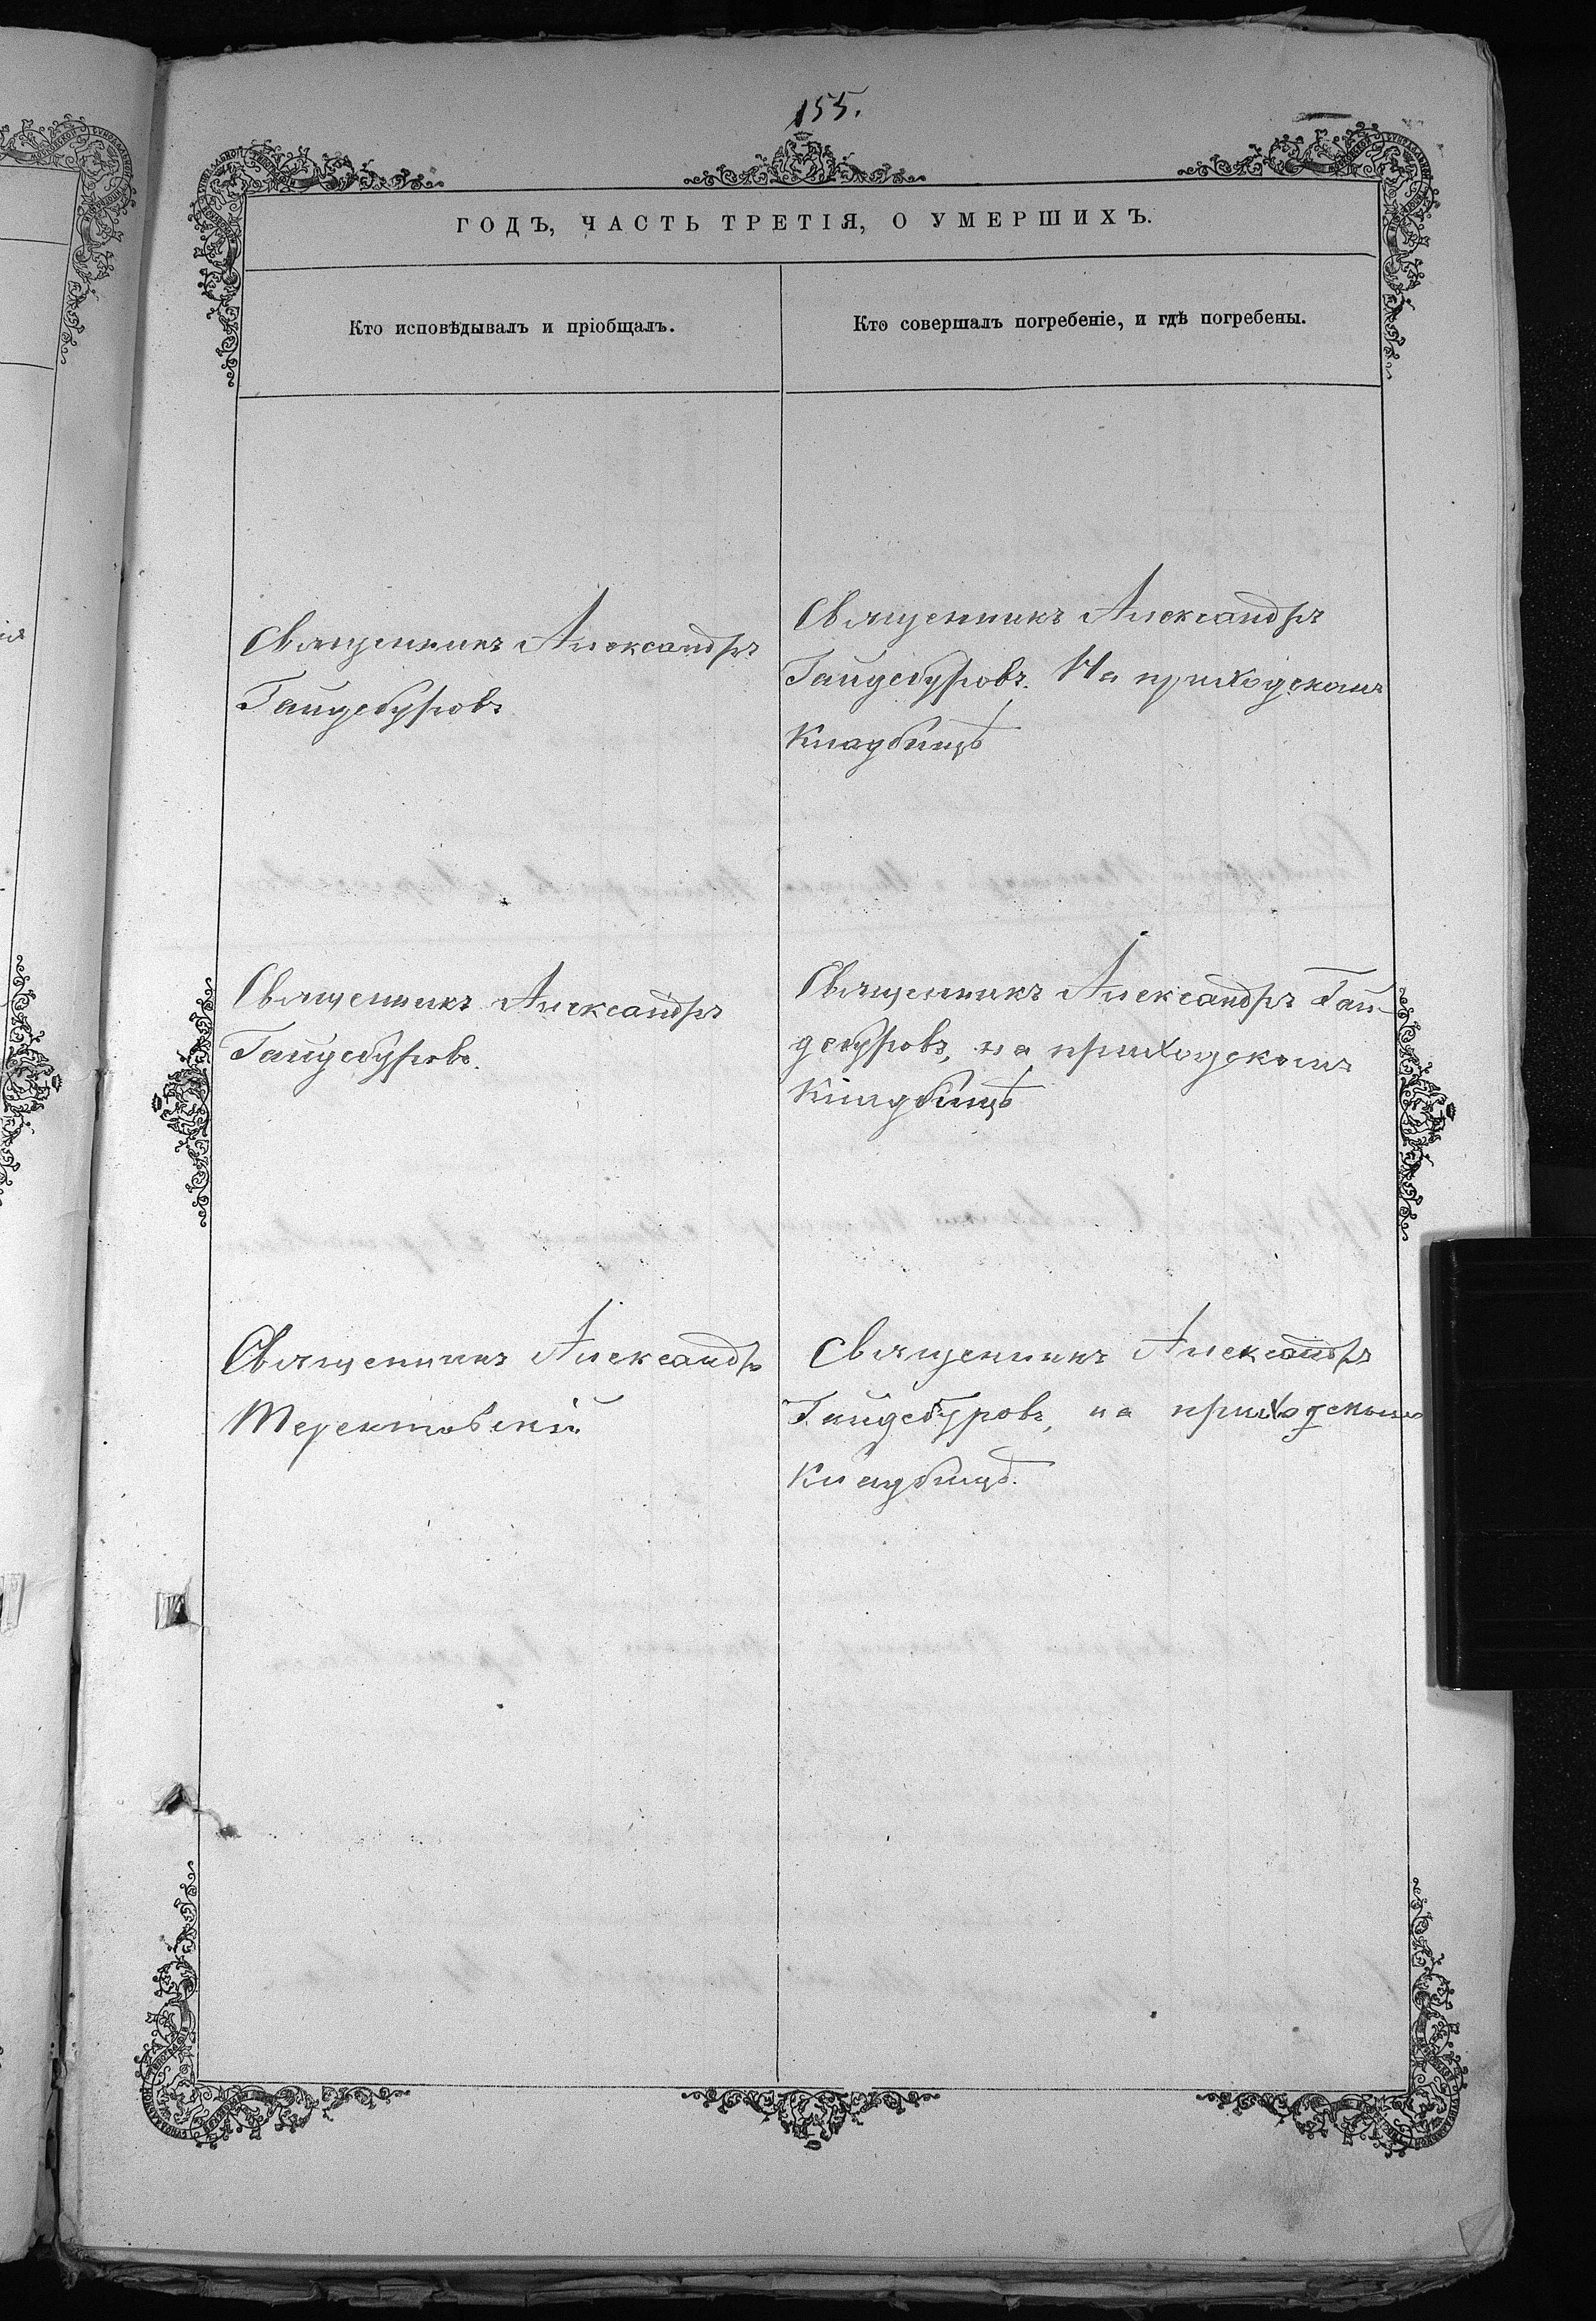 155.
ГОДЪ, ЧАСТЬ ТРЕТІЯ, О УМЕРШИХЪ.
Кто исповѣдывалъ и пріобщалъ.
Кто совершалъ погребеніе, и гдѣ погребены.
Священникъ Александръ
Гайдебуровъ
Священникъ Александръ
Гайдебуровъ. На приходскомъ
Кладбищѣ
Священникъ Александръ
Гайдебуровъ.
Священникъ Александръ Гай-
дебуровъ, на приходскомъ
Кладбищѣ
Священникъ Александръ
Терентовскій
Священникъ Александръ
Гайдебуровъ, на приходскомъ
Кладбищѣ.